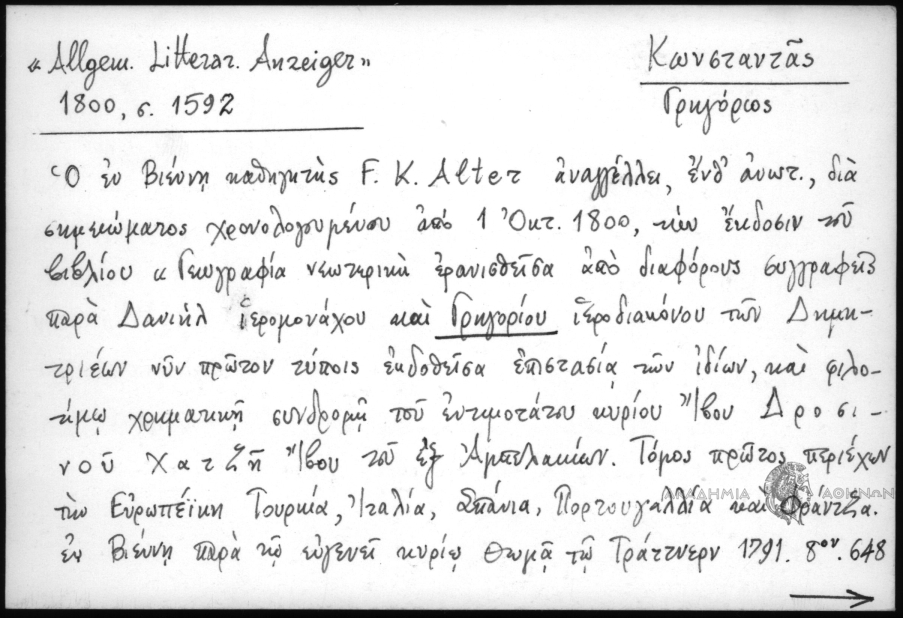 « Allgem. Litterar. Anzeiger »
1800, σ. 1592
Κωνσταντᾶς
Γρηγόριος
Ὁ ἐν Βιέννῃ καθηγητὴς F. K. Alter ἀναγγέλλει, ἔνθ' ἀνωτ., διὰ
σημειώματος χρονολογουμένου ἀπὸ 1 Ὀκτ. 1800, τὴν ἔκδοσιν τοῦ
βιβλίου « Γεωγραφία νεωτερικὴ ἐρανισθεῖσα ἀπὸ διαφόρους συγγραφεῖς
παρὰ Δανιὴλ ἱερομονάχου καὶ Γρηγορίου ἱεροδιακόνου τῶν Δημη-
τριέων νῦν πρῶτον τύποις ἐκδοθεῖσα ἐπιστασίᾳ τῶν ἰδίων, καὶ φιλο-
τίμῳ χρηματικῇ συνδρομῇ τοῦ ἐντιμοτάτου κυρίου Ἴβου Δροσι-
νοῦ Χατζῆ Ἴβου τοῦ ἐξ Ἀμπελακίων. Τόμος πρῶτος περιέχων
τὴν Εὐρωπέϊκη Τουρκία, Ἰταλία, Σπάνια, Πορτουγαλλία καὶ Φράντζα.
ἐν Βιέννῃ παρὰ τῷ εὐγενεῖ κυρίῳ Θωμᾷ τῷ Τράττνερν 1791. 8ον. 648
ΑΚΑΔΗΜΙΑ ΑΘΗΝΩΝ